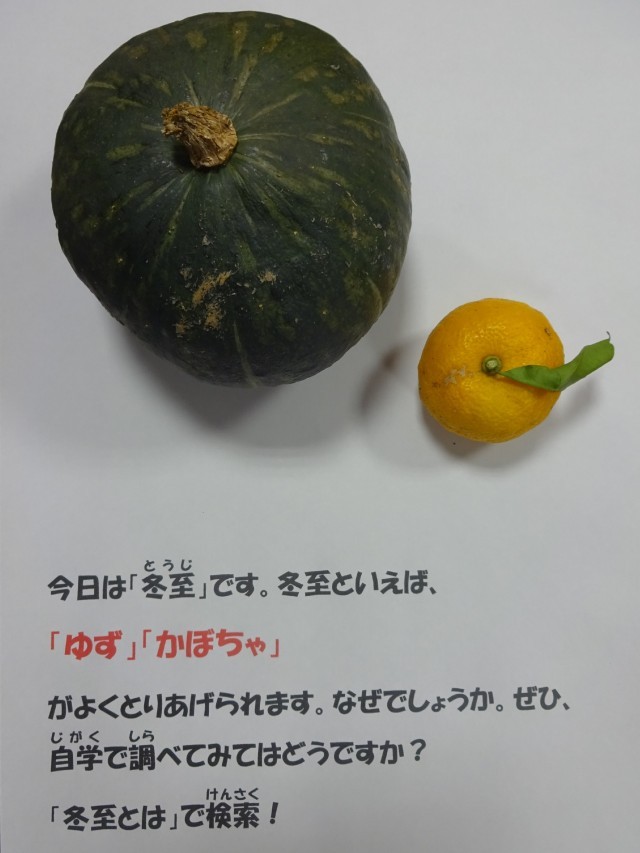 今日は「冬至」です。冬至といえば、
「ゆず」「かぼちゃ」
がよくとりあげられます。なぜでしょうか。ぜひ、
自学で調べてみてはどうですか？
「冬至とは」で検索！